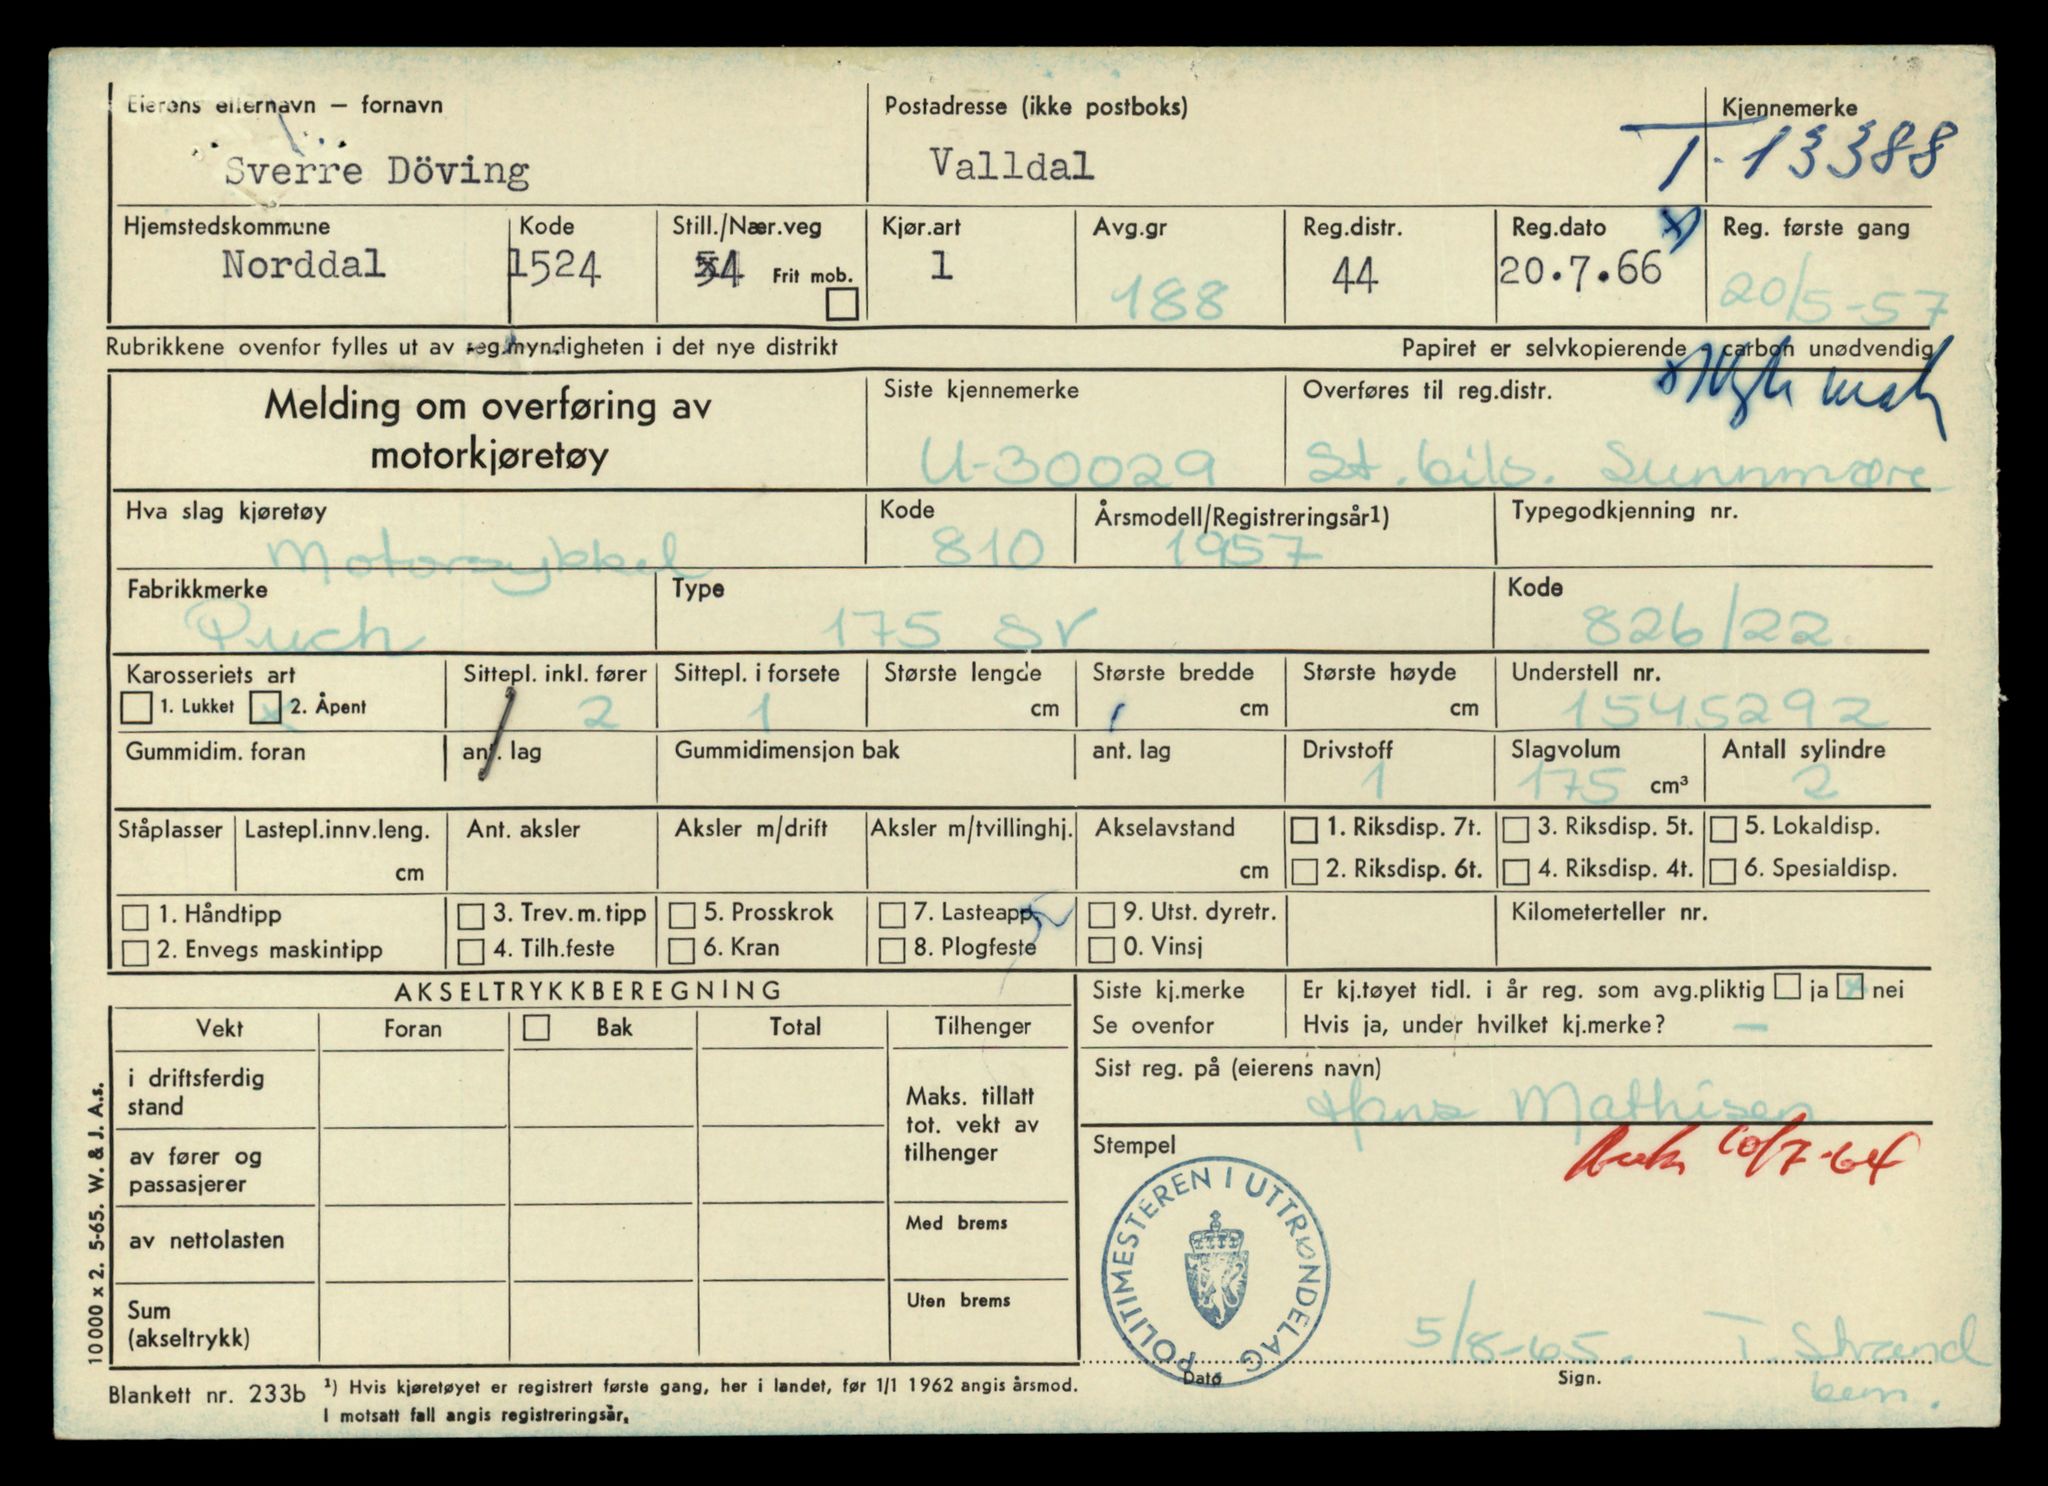 Eierens etternavn — fornavn
Postadresse (ikke postboks)
Kjennemerke
Sverre Döving
Valldal
T-13388
Hjemstedskommune
Kode
Still./Nær.veg
Kjør.art
Avg.gr
Reg.distr.
Reg.dato
Reg. første gang
Norddal
1524
54
Frit mob.
1
188
44
20.7.66
20/5-57
Rubrikkene ovenfor fylles ut av reg.myndigheten i det nye distrikt
Papiret er selvkopierende - carbon unødvendig
Melding om overføring av
motorkjøretøy
Siste kjennemerke
Overføres til reg.distr.
U-30029
St. bils. Sunnmøre
Hva slag kjøretøy
Kode
Årsmodell/Registreringsår1)
Typegodkjenning nr.
Motorsykkel
810
1957
Fabrikkmerke
Type
Kode
Puch
175 SV
826/22
Karosseriets art
Sittepl. inkl. fører
Sittepl. i forsete
Største lengde
Største bredde
Største høyde
Understell nr.
1. Lukket
x 2. Åpent
2
1
cm
cm
cm
1545292
Gummidim. foran
ant. lag
Gummidimensjon bak
ant. lag
Drivstoff
Slagvolum
Antall sylindre
1
175 cm³
2
Ståplasser
Lastepl.innv.leng.
Ant. aksler
Aksler m/drift
Aksler m/tvillinghj.
Akselavstand
1. Riksdisp. 7t.
3. Riksdisp. 5t.
5. Lokaldisp.
cm
cm
2. Riksdisp. 6t.
4. Riksdisp. 4t.
6. Spesialdisp.
1. Håndtipp
3. Trev.m.tipp
5. Prosskrok
7. Lasteapp.
9. Utst. dyretr.
Kilometerteller nr.
2. Envegs maskintipp
4. Tilh.feste
6. Kran
8. Plogfeste
0. Vinsj
AKSELTRYKKBEREGNING
Siste kj.merke
Er kj.tøyet tidl. i år reg. som avg.pliktig ja x nei
Vekt
Foran
Bak
Total
Tilhenger
Se ovenfor
Hvis ja, under hvilket kj.merke? —
i driftsferdig
stand
Maks. tillatt
tot. vekt av
tilhenger
Sist reg. på (eierens navn)
Hans Mathisen
av fører og
passasjerer
Stempel
10/7-64
POLITIMESTEREN I UTTRØNDELAG
av nettolasten
Med brems
Sum
(akseltrykk)
Uten brems
5/8-65.
T. Strand
bem.
Dato
Sign.
10000 x 2. 5-65. W. & J. A.s.
Blankett nr. 233b
1) Hvis kjøretøyet er registrert første gang, her i landet, før 1/1 1962 angis årsmod.
I motsatt fall angis registreringsår.